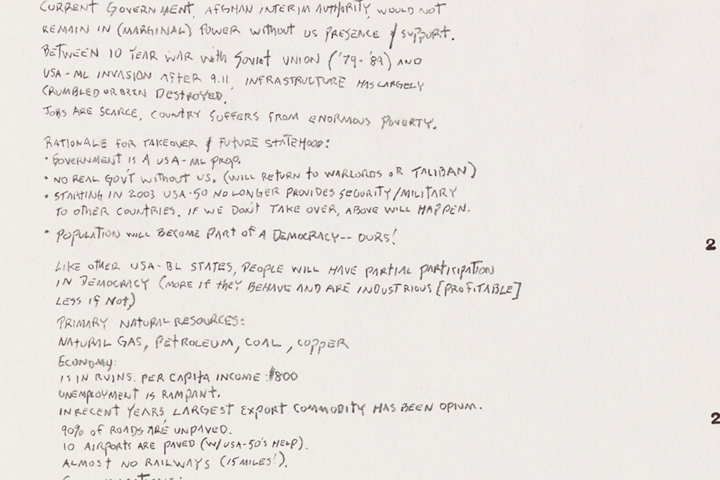 CURRENT GOVERNMENT, AFGHAN INTERIM AUTHORITY, WOULD NOT
REMAIN IN (MARGINAL) POWER WITHOUT US PRESENCE & SUPPORT.
BETWEEN 10 YEAR WAR WITH SOVIET UNION ('79-'89) AND
USA-ML INVASION AFTER 9.11, INFRASTRUCTURE HAS LARGELY
CRUMBLED OR BEEN DESTROYED.
JOBS ARE SCARCE, COUNTRY SUFFERS FROM ENORMOUS POVERTY.
RATIONALE FOR TAKEOVER & FUTURE STATEHOOD:
• GOVERNMENT IS A USA-ML PROP.
• NO REAL GOV'T WITHOUT US. (WILL RETURN TO WARLORDS OR TALIBAN)
• STARTING IN 2003 USA-50 NO LONGER PROVIDES SECURITY/MILITARY
TO OTHER COUNTRIES. IF WE DON'T TAKE OVER, ABOVE WILL HAPPEN.
• POPULATION WILL BECOME PART OF A DEMOCRACY-- OURS!
2
LIKE OTHER USA-BL STATES, PEOPLE WILL HAVE PARTIAL PARTICIPATION
IN DEMOCRACY (MORE IF THEY BEHAVE AND ARE INDUSTRIOUS [PROFITABLE]
LESS IF NOT)
PRIMARY NATURAL RESOURCES:
NATURAL GAS, PETROLEUM, COAL, COPPER
ECONOMY:
IS IN RUINS. PER CAPITA INCOME: $800
UNEMPLOYMENT IS RAMPANT.
IN RECENT YEARS, LARGEST EXPORT COMMODITY HAS BEEN OPIUM.
2
90% OF ROADS ARE UNPAVED.
10 AIRPORTS ARE PAVED (W/USA-50'S HELP).
ALMOST NO RAILWAYS (15 MILES!).